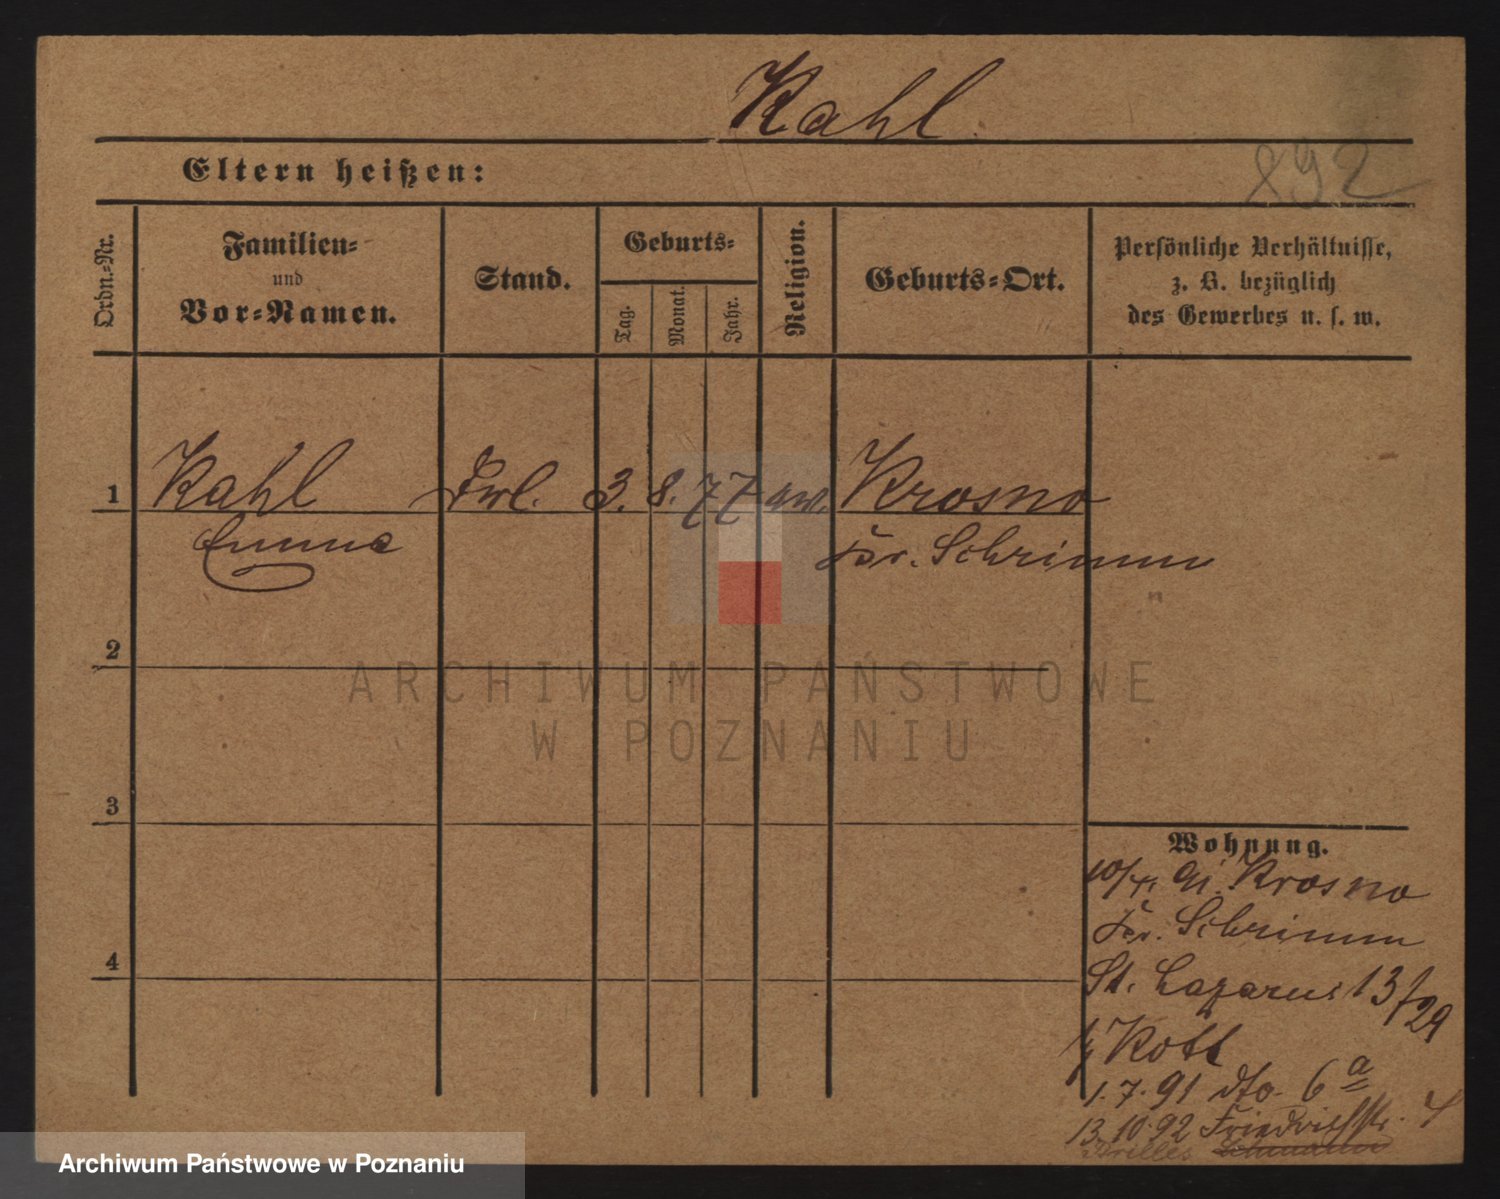 Kahl.
892
Eltern heißen:
Ordn.-Nr.
Familien-
und
Vor-Namen.
Stand.
Geburts-
Tag.
Monat.
Jahr.
Religion.
Geburts-Ort.
Persönliche Verhältnisse,
z. B. bezüglich
des Gewerbes u. s. w.
1 Kahl Frl. 3. 8. 77 ew. Krosno
Emma Kr. Schrimm
2
ARCHIWUM PAŃSTWOWE
W POZNANIU
3
4
Wohnung.
10/4. 91. Krosno
Kr. Schrimm
St. Lazarus 13/29
b/ Kott
1. 7. 91 dto. 6a
13. 10. 92 Friedrichstr. 4
Archiwum Państwowe w Poznaniu